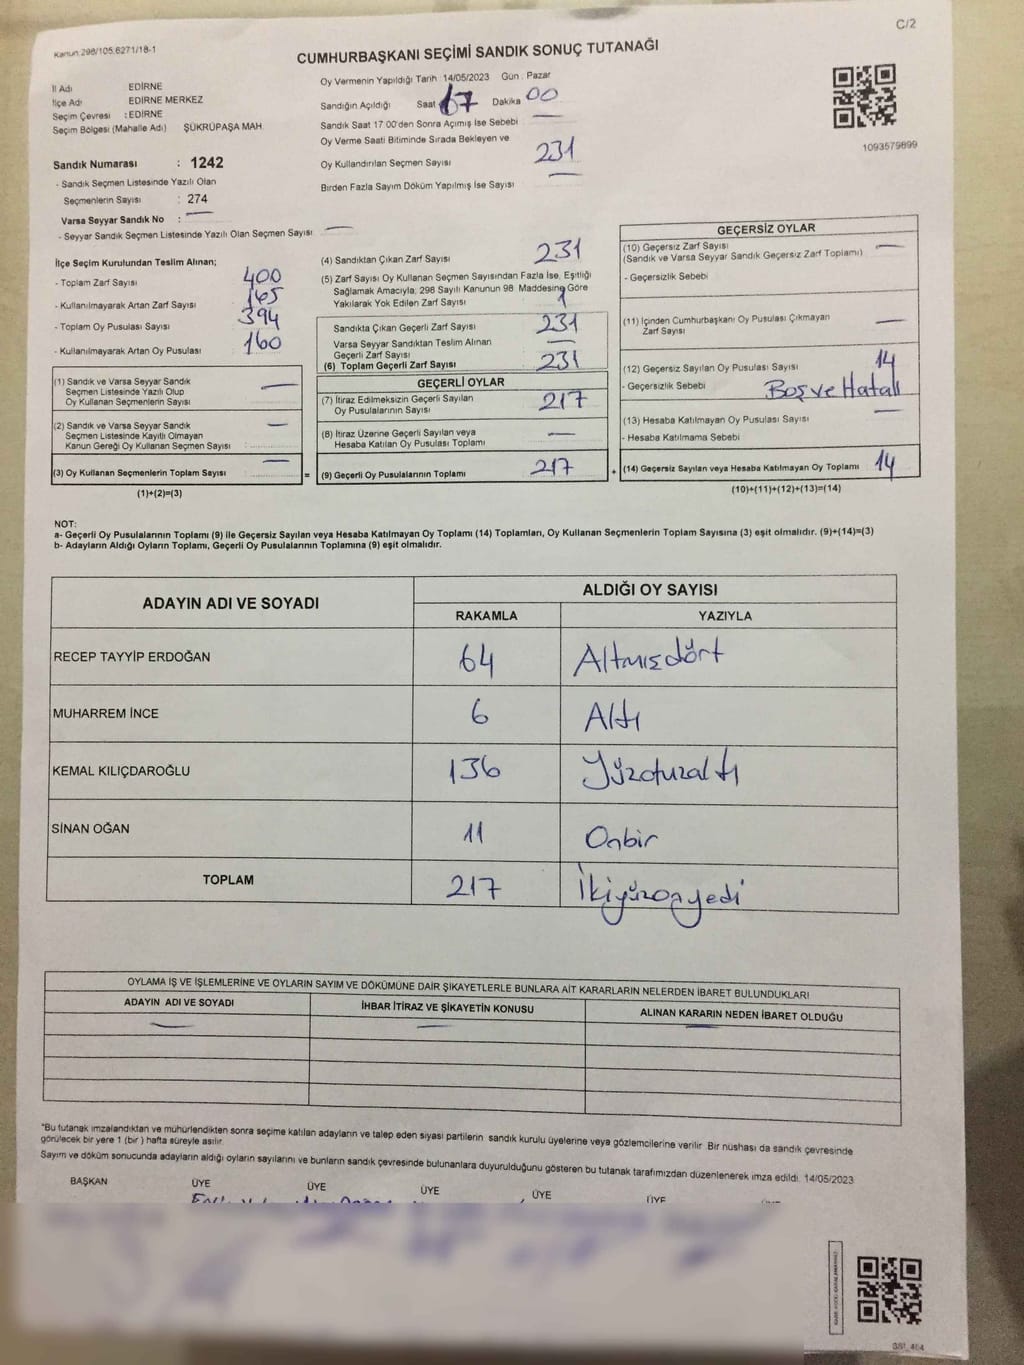 C/2
Kanun 298/105.6271/18-1
CUMHURBAŞKANI SEÇİMİ SANDIK SONUÇ TUTANAĞI
İl Adı EDİRNE
İlçe Adı EDİRNE MERKEZ
Seçim Çevresi : EDİRNE
Seçim Bölgesi (Mahalle Adı) ŞÜKRÜPAŞA MAH.
Sandık Numarası : 1242
- Sandık Seçmen Listesinde Yazılı Olan
Seçmenlerin Sayısı : 274
Varsa Seyyar Sandık No : —
- Seyyar Sandık Seçmen Listesinde Yazılı Olan Seçmen Sayısı —
Oy Vermenin Yapıldığı Tarih 14/05/2023 Gün : Pazar
Sandığın Açıldığı Saat 17 Dakika 00
Sandık Saat 17:00'den Sonra Açımış İse Sebebi —
Oy Verme Saati Bitiminde Sırada Bekleyen ve
Oy Kullandırılan Seçmen Sayısı 231
Birden Fazla Sayım Döküm Yapılmış İse Sayısı —
1093579899
İlçe Seçim Kurulundan Teslim Alınan;
- Toplam Zarf Sayısı 400
- Kullanılmayarak Artan Zarf Sayısı 165
- Toplam Oy Pusulası Sayısı 394
- Kullanılmayarak Artan Oy Pusulası 160
(1) Sandık ve Varsa Seyyar Sandık —
Seçmen Listesinde Yazılı Olup
Oy Kullanan Seçmenlerin Sayısı
(2) Sandık ve Varsa Seyyar Sandık —
Seçmen Listesinde Kayıtlı Olmayan
Kanun Gereği Oy Kullanan Seçmen Sayısı
(3) Oy Kullanan Seçmenlerin Toplam Sayısı —
(1)+(2)=(3)
(4) Sandıktan Çıkan Zarf Sayısı 231
(5) Zarf Sayısı Oy Kullanan Seçmen Sayısından Fazla İse, Eşitliği
Sağlamak Amacıyla, 298 Sayılı Kanunun 98. Maddesine Göre
Yakılarak Yok Edilen Zarf Sayısı
Sandıkta Çıkan Geçerli Zarf Sayısı 231
Varsa Seyyar Sandıktan Teslim Alınan —
Geçerli Zarf Sayısı
(6) Toplam Geçerli Zarf Sayısı 231
GEÇERLİ OYLAR
(7) İtiraz Edilmeksizin Geçerli Sayılan
Oy Pusulalarının Sayısı 217
(8) İtiraz Üzerine Geçerli Sayılan veya
Hesaba Katılan Oy Pusulası Toplamı —
= (9) Geçerli Oy Pusulalarının Toplamı 217 +
GEÇERSİZ OYLAR
(10) Geçersiz Zarf Sayısı —
(Sandık ve Varsa Seyyar Sandık Geçersiz Zarf Toplamı)
- Geçersizlik Sebebi
(11) İçinden Cumhurbaşkanı Oy Pusulası Çıkmayan —
Zarf Sayısı
(12) Geçersiz Sayılan Oy Pusulası Sayısı 14
- Geçersizlik Sebebi Boş ve Hatalı
(13) Hesaba Katılmayan Oy Pusulası Sayısı —
- Hesaba Katılmama Sebebi
(14) Geçersiz Sayılan veya Hesaba Katılmayan Oy Toplamı 14
(10)+(11)+(12)+(13)=(14)
NOT:
a- Geçerli Oy Pusulalarının Toplamı (9) ile Geçersiz Sayılan veya Hesaba Katılmayan Oy Toplamı (14) Toplamları, Oy Kullanan Seçmenlerin Toplam Sayısına (3) eşit olmalıdır. (9)+(14)=(3)
b- Adayların Aldığı Oyların Toplamı, Geçerli Oy Pusulalarının Toplamına (9) eşit olmalıdır.
ADAYIN ADI VE SOYADI ALDIĞI OY SAYISI
RAKAMLA YAZIYLA
RECEP TAYYİP ERDOĞAN 64 Altmışdört
MUHARREM İNCE 6 Altı
KEMAL KILIÇDAROĞLU 136 Yüzotuzaltı
SİNAN OĞAN 11 Onbir
TOPLAM 217 İkiyüzonyedi
OYLAMA İŞ VE İŞLEMLERİNE VE OYLARIN SAYIM VE DÖKÜMÜNE DAİR ŞİKAYETLERLE BUNLARA AİT KARARLARIN NELERDEN İBARET BULUNDUKLARI
ADAYIN ADI VE SOYADI İHBAR İTİRAZ VE ŞİKAYETİN KONUSU ALINAN KARARIN NEDEN İBARET OLDUĞU
— — —
*Bu tutanak imzalandıktan ve mühürlendikten sonra seçime katılan adayların ve talep eden siyasi partilerin sandık kurulu üyelerine veya gözlemcilerine verilir. Bir nüshası da sandık çevresinde
görülecek bir yere 1 (bir) hafta süreyle asılır.
Sayım ve döküm sonucunda adayların aldığı oyların sayılarını ve bunların sandık çevresinde bulunanlara duyurulduğunu gösteren bu tutanak tarafımızdan düzenlenerek imza edildi. 14/05/2023
BAŞKAN ÜYE ÜYE ÜYE ÜYE ÜYE